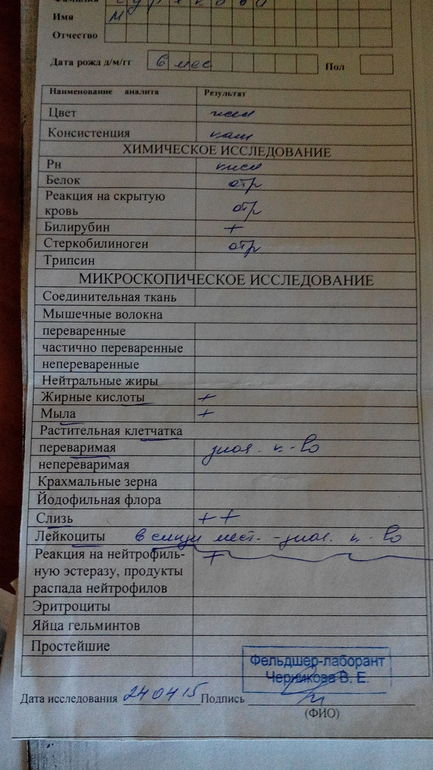 Фамилия
Имя М
Отчество
Дата рожд д/м/гг 6 мес Пол
Наименование аналита Результат
Цвет жел
Консистенция каш
ХИМИЧЕСКОЕ ИССЛЕДОВАНИЕ
Рн кисл
Белок отр
Реакция на скрытую
кровь отр
Билирубин +
Стеркобилиноген отр
Трипсин
МИКРОСКОПИЧЕСКОЕ ИССЛЕДОВАНИЕ
Соединительная ткань
Мышечные волокна
переваренные
частично переваренные
непереваренные
Нейтральные жиры
Жирные кислоты +
Мыла +
Растительная клетчатка
переваримая знач. к-во
непереваримая
Крахмальные зерна
Йодофильная флора
Слизь ++
Лейкоциты в слизи мест. - знач. к-во
Реакция на нейтрофиль- +
ную эстеразу, продукты
распада нейтрофилов
Эритроциты
Яйца гельминтов
Простейшие
Фельдшер-лаборант
Черникова В. Е.
Дата исследования 240415 Подпись
(ФИО)